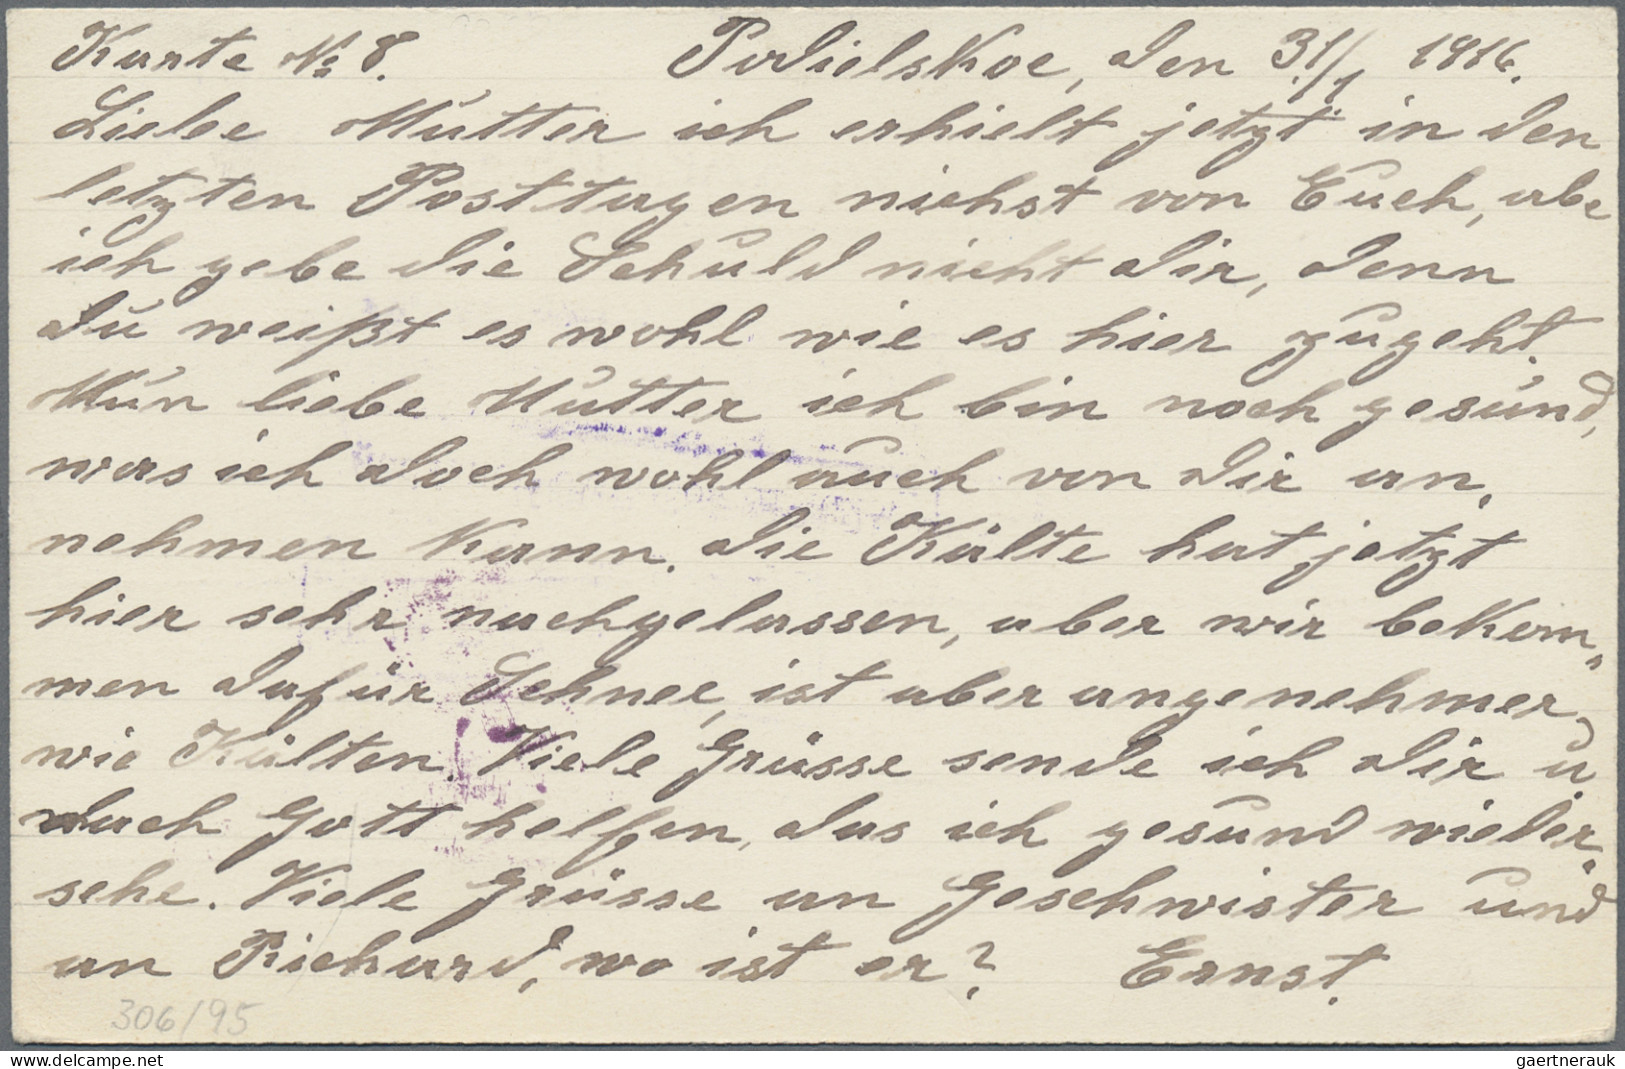 Karte № 8. Podielskoe, den 31/1 1916.
Liebe Mutter ich erhielt jetzt in den
letzten Posttagen nichst von Euch, abe
ich gebe die Schuld nicht dir, denn
du weißt es wohl wie es hier zugeht.
Nun liebe Mutter ich bin noch gesund,
was ich doch wohl auch von dir an,
nehmen kann. die Kälte hat jetzt
hier sehr nachgelassen, aber wir bekom„
men dafür Schnee, ist aber angenehmer,
wie Kälten. Viele Grüsse sende ich dir u.
auch Gott helfen, das ich gesund wieder„
sehe. Viele Grüsse an Geschwister und
an Richard, wo ist er? Ernst.
306/95
www.oldthing.net
gaertnerauk